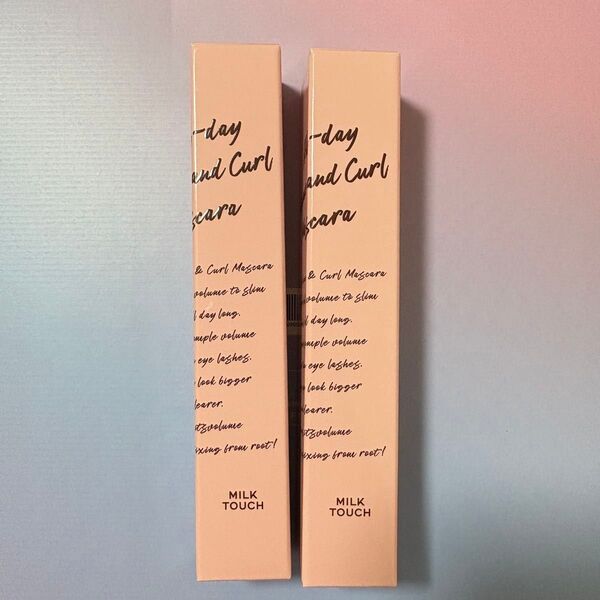 -day
and Curl
scara
& Curl Mascara
volume to slim
l day long.
ample volume
eye lashes.
look bigger
learer.
otsvolume
ixing from root!
MILK
TOUCH
-day
and Curl
scara
& Curl Mascara
volume to slim
l day long.
ample volume
eye lashes.
look bigger
learer.
otsvolume
ixing from root!
MILK
TOUCH